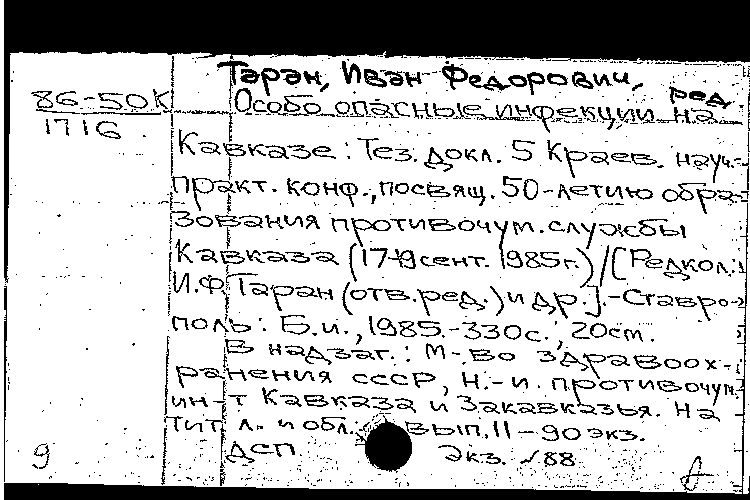 Таран, Иван Федорович, ред.
86-50К Особо опасные инфекции на
1716
Кавказе: Тез. докл. 5 Краев. науч.-
практ. конф., посвящ. 50-летию обра-
зования противочум. службы
Кавказа (17-19 сент. 1985г.)/[Редкол.:
И.Ф. Таран (отв. ред.) и др.].-Ставро-
поль: Б.и., 1985.-330с.; 20см.
В надзаг.: М-во здравоох-
ранения СССР, Н.-и. противочум.
ин-т Кавказа и Закавказья. На
тит. л. и обл.: вып. 11-90экз.
9 ДСП Экз. 88